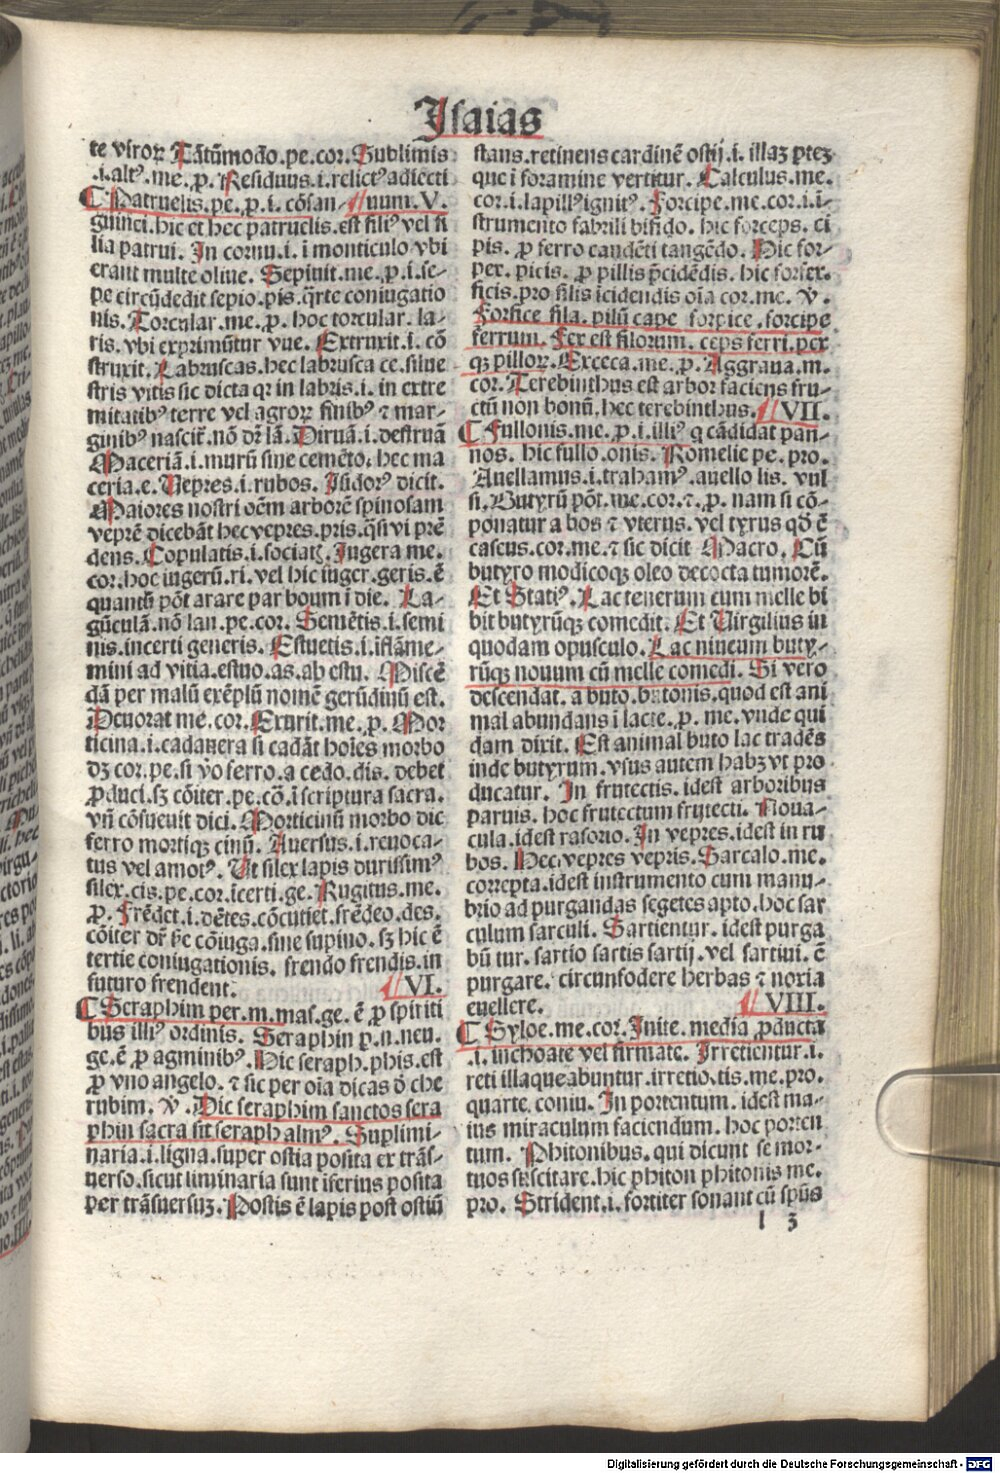 Isaias
te viroꝝ Tātūmodo.pe.cor. Sublimis
.i.altꝰ.me.ꝓ. Residuus.i.relictꝰ adiecti
⸿ Patruelis.pe.ꝓ.i. cōsan-⸿uum. V.
guinei.hic et hec patruelis.est filiꝰ vel fi
lia patrui. In cornu.i. ī monticulo vbi
erant multe oliue. Sepiuit.me.ꝓ.i.se-
pe circūdedit sepio.pis.q̄rte coniugatio
nis. Torcular.me.ꝓ. hoc torcular. la-
ris. vbi exprimūtur vue. Extruxit.i. cō
struxit. Labruscas.hec labrusca ce.silue
stris vitis sic dicta qr in labris.i. in extre
mitatibꝰ terre vel agroꝝ finibꝰ ⁊ mar-
ginibꝰ nascit̄. nō dr̄ lā. Diruā.i.destruā
Maceriā.i.murū sine cemēto. hec ma
ceria.e. Uepres.i.rubos. Isidorꝰ dicit.
Maiores nostri oēm arborē spinosam
veprē dicebāt hec vepres.pris.q̄si vi prē
dens. Copulatis.i.sociatꝭ. Jugera me.
cor. hoc iugerū.ri. vel hic iuger.geris.ē
quantū pōt arare par boum ī die. La-
gūculā.nō lan.pe.cor. Semētis.i.semi
nis.incerti generis. Estuetis.i.īflāme-
mini ad vitia.estuo.as.ab estu. Miscē
dā per malū exēplū nomē gerūdiuū est.
Deuorat me.cor. Exurit.me.ꝓ. Mor
ticina.i.cadauera si cadāt hoīes morbo
dꝫ cor.pe.si ꝟo ferro.a cedo.dis. debet
ꝓduci.sꝫ cōiter.pe.cō.ī scriptura sacra.
vn̄ cōsueuit dici. Morticinū morbo dic
ferro mortiqꝫ cinū. Auersus.i.reuoca-
tus vel amotꝰ. Ut silex lapis durissimꝰ
silex.cis.pe.cor.īcerti.ge. Rugitus.me.
ꝓ. Frēdet.i.dētes.cōcutiet.frēdeo.des.
cōiter dr̄ h̄e cōiuga.sine supino. sꝫ hic ē
tertie coniugationis. frendo frendis.in
futuro frendent. ⸿VI.
⸿ Seraphim per.m.mas.ge. ē ꝓ spiriti
bus illiꝰ ordinis. Seraphin ꝑ.n.neu.
ge.ē ꝓ agminibꝰ. Hic seraph.phis.est
ꝓ vno angelo. ⁊ sic per oīa dicas ꝺ che
rubim. ꝟ. Hic seraphim sanctos sera
phin sacra sit seraph almꝰ. Suplimi-
naria.i.ligna.super ostia posita ex trās-
uerso.sicut liminaria sunt īferius posita
per trāsuersuꝫ. Postis ē lapis post ostiū
stans.retinens cardinē ostij.i. illaꝫ pteꝫ
que ī foramine vertitur. Calculus.me.
cor.i.lapillꝰ ignitꝰ. Forcipe.me.cor.i.ī-
strumento fabrili bifido. hic forceps. ci
pis. ꝓ ferro candēti tangēdo. Hic for-
pex. picis. ꝓ pillis p̄cidēdis. hic forfex.
ficis.pro filis īcidendis oīa cor.me. ꝟ.
Forfice fila. pilū cape forpice .forcipe
ferrum. Fex est filorum. ceps ferri.pex
qꝫ pilloꝝ. Exceca.me.ꝓ. Aggraua.m.
cor. Terebinthus est arbor faciens fru-
ctū non bonū.hec terebinthus. ⸿VII.
⸿ Fullonis.me.ꝓ.i.illiꝰ q cādidat pan-
nos. hic fullo.onis. Romelie pe.pro.
Auellamus.i.trahamꝰ.auello lis. vul
si. Butyrū pōt.me.cor.⁊.ꝓ. nam si cō-
ponatur a bos ⁊ vterus. vel tyrus qd̄ ē
caseus.cor.me.⁊ sic dicit Macro. Cū
butyro modicoqꝫ oleo decocta tumorē.
Et Statiꝰ. Lac tenerum cum melle bi
bit butyrūqꝫ comedit. Et Virgilius in
quodam opusculo. Lac niueum buty-
rūqꝫ nouum cū melle comedi. Si vero
descendat.a buto.butonis.quod est ani
mal abundans ī lacte.ꝓ.me.vnde qui
dam dixit. Est animal buto lac tradēs
inde butyrum.vsus autem habꝫ vt pro
ducatur. In frutectis. idest arboribus
paruis. hoc frutectum frutecti. Noua-
cula.idest rasorio. In vepres.idest in ru
bos. Hec vepres vepris. Sarcalo.me.
correpta.idest instrumento cum manu-
brio ad purgandas segetes apto.hoc sar
culum sarculi. Sartientur. idest purga
būtur.sartio sartis sartij.vel sartiui. ē
purgare. circunfodere herbas ⁊ noxia
euellere. ⸿VIII.
⸿ Syloe.me.cor. Inite.media ꝓducta
.i. inchoate vel firmate. Irretientur.i.
reti illaqueabuntur.irretio.tis.me.pro.
quarte. coniu. In portentum. idest ma-
ius miraculum faciendum. hoc porten
tum. Phitonibus. qui dicunt se mor-
tuos suscitare. hic phiton phitonis me.
pro. Strident.i. fortiter sonant cū spūs
l 3
Digitalisierung gefördert durch die Deutsche Forschungsgemeinschaft - DFG